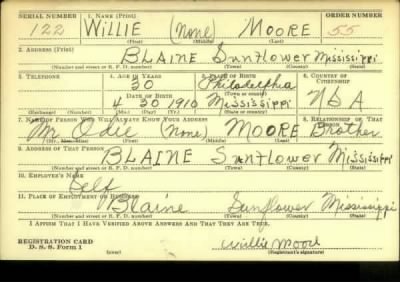 SERIAL NUMBER 1. NAME (Print) ORDER NUMBER
122 WILLIE (None) MOORE 55
(First) (Middle) (Last)
2. ADDRESS (Print)
BLAINE Sunflower Mississippi
(Number and street or R. F. D. number) (Town) (County) (State)
3. TELEPHONE 4. AGE IN YEARS 5. PLACE OF BIRTH 6. COUNTRY OF CITIZENSHIP
30 Philadelphia
(Town or county)
DATE OF BIRTH
4 30 1910 Mississippi USA
(Exchange) (Number) (Mo.) (Day) (Yr.) (State or country)
7. NAME OF PERSON WHO WILL ALWAYS KNOW YOUR ADDRESS 8. RELATIONSHIP OF THAT PERSON
Mr Odie (None) MOORE Brother
(Mr., Mrs., Miss) (First) (Middle) (Last)
9. ADDRESS OF THAT PERSON
BLAINE Sunflower Mississippi
(Number and street or R. F. D. number) (Town) (County) (State)
10. EMPLOYER'S NAME
Self
11. PLACE OF EMPLOYMENT OR BUSINESS
Blaine Sunflower Mississippi
(Number and street or R. F. D. number) (Town) (County) (State)
I AFFIRM THAT I HAVE VERIFIED ABOVE ANSWERS AND THAT THEY ARE TRUE.
REGISTRATION CARD
D. S. S. Form 1 Willie Moore
(Registrant's signature)